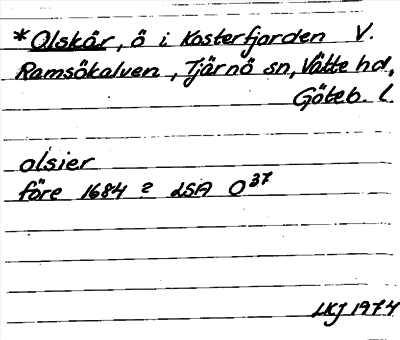 *Olskär, ö i Kosterfjorden V.
Ramsökalven, Tjärnö sn, Vätte hd,
Göteb. l.
olsier
före 1684 ? LSA O37
LKJ 1974